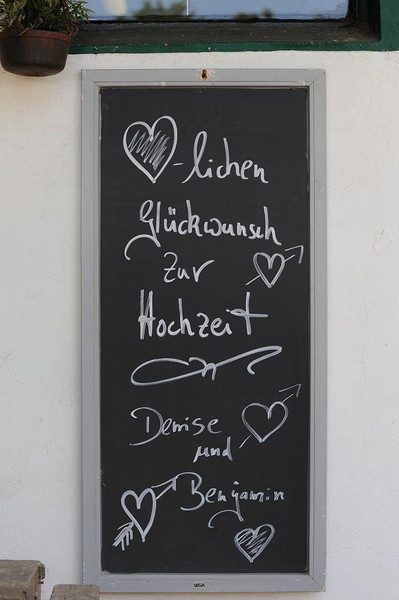 ♥-lichen
Glückwunsch
zur
Hochzeit
Denise
und
Benjamin